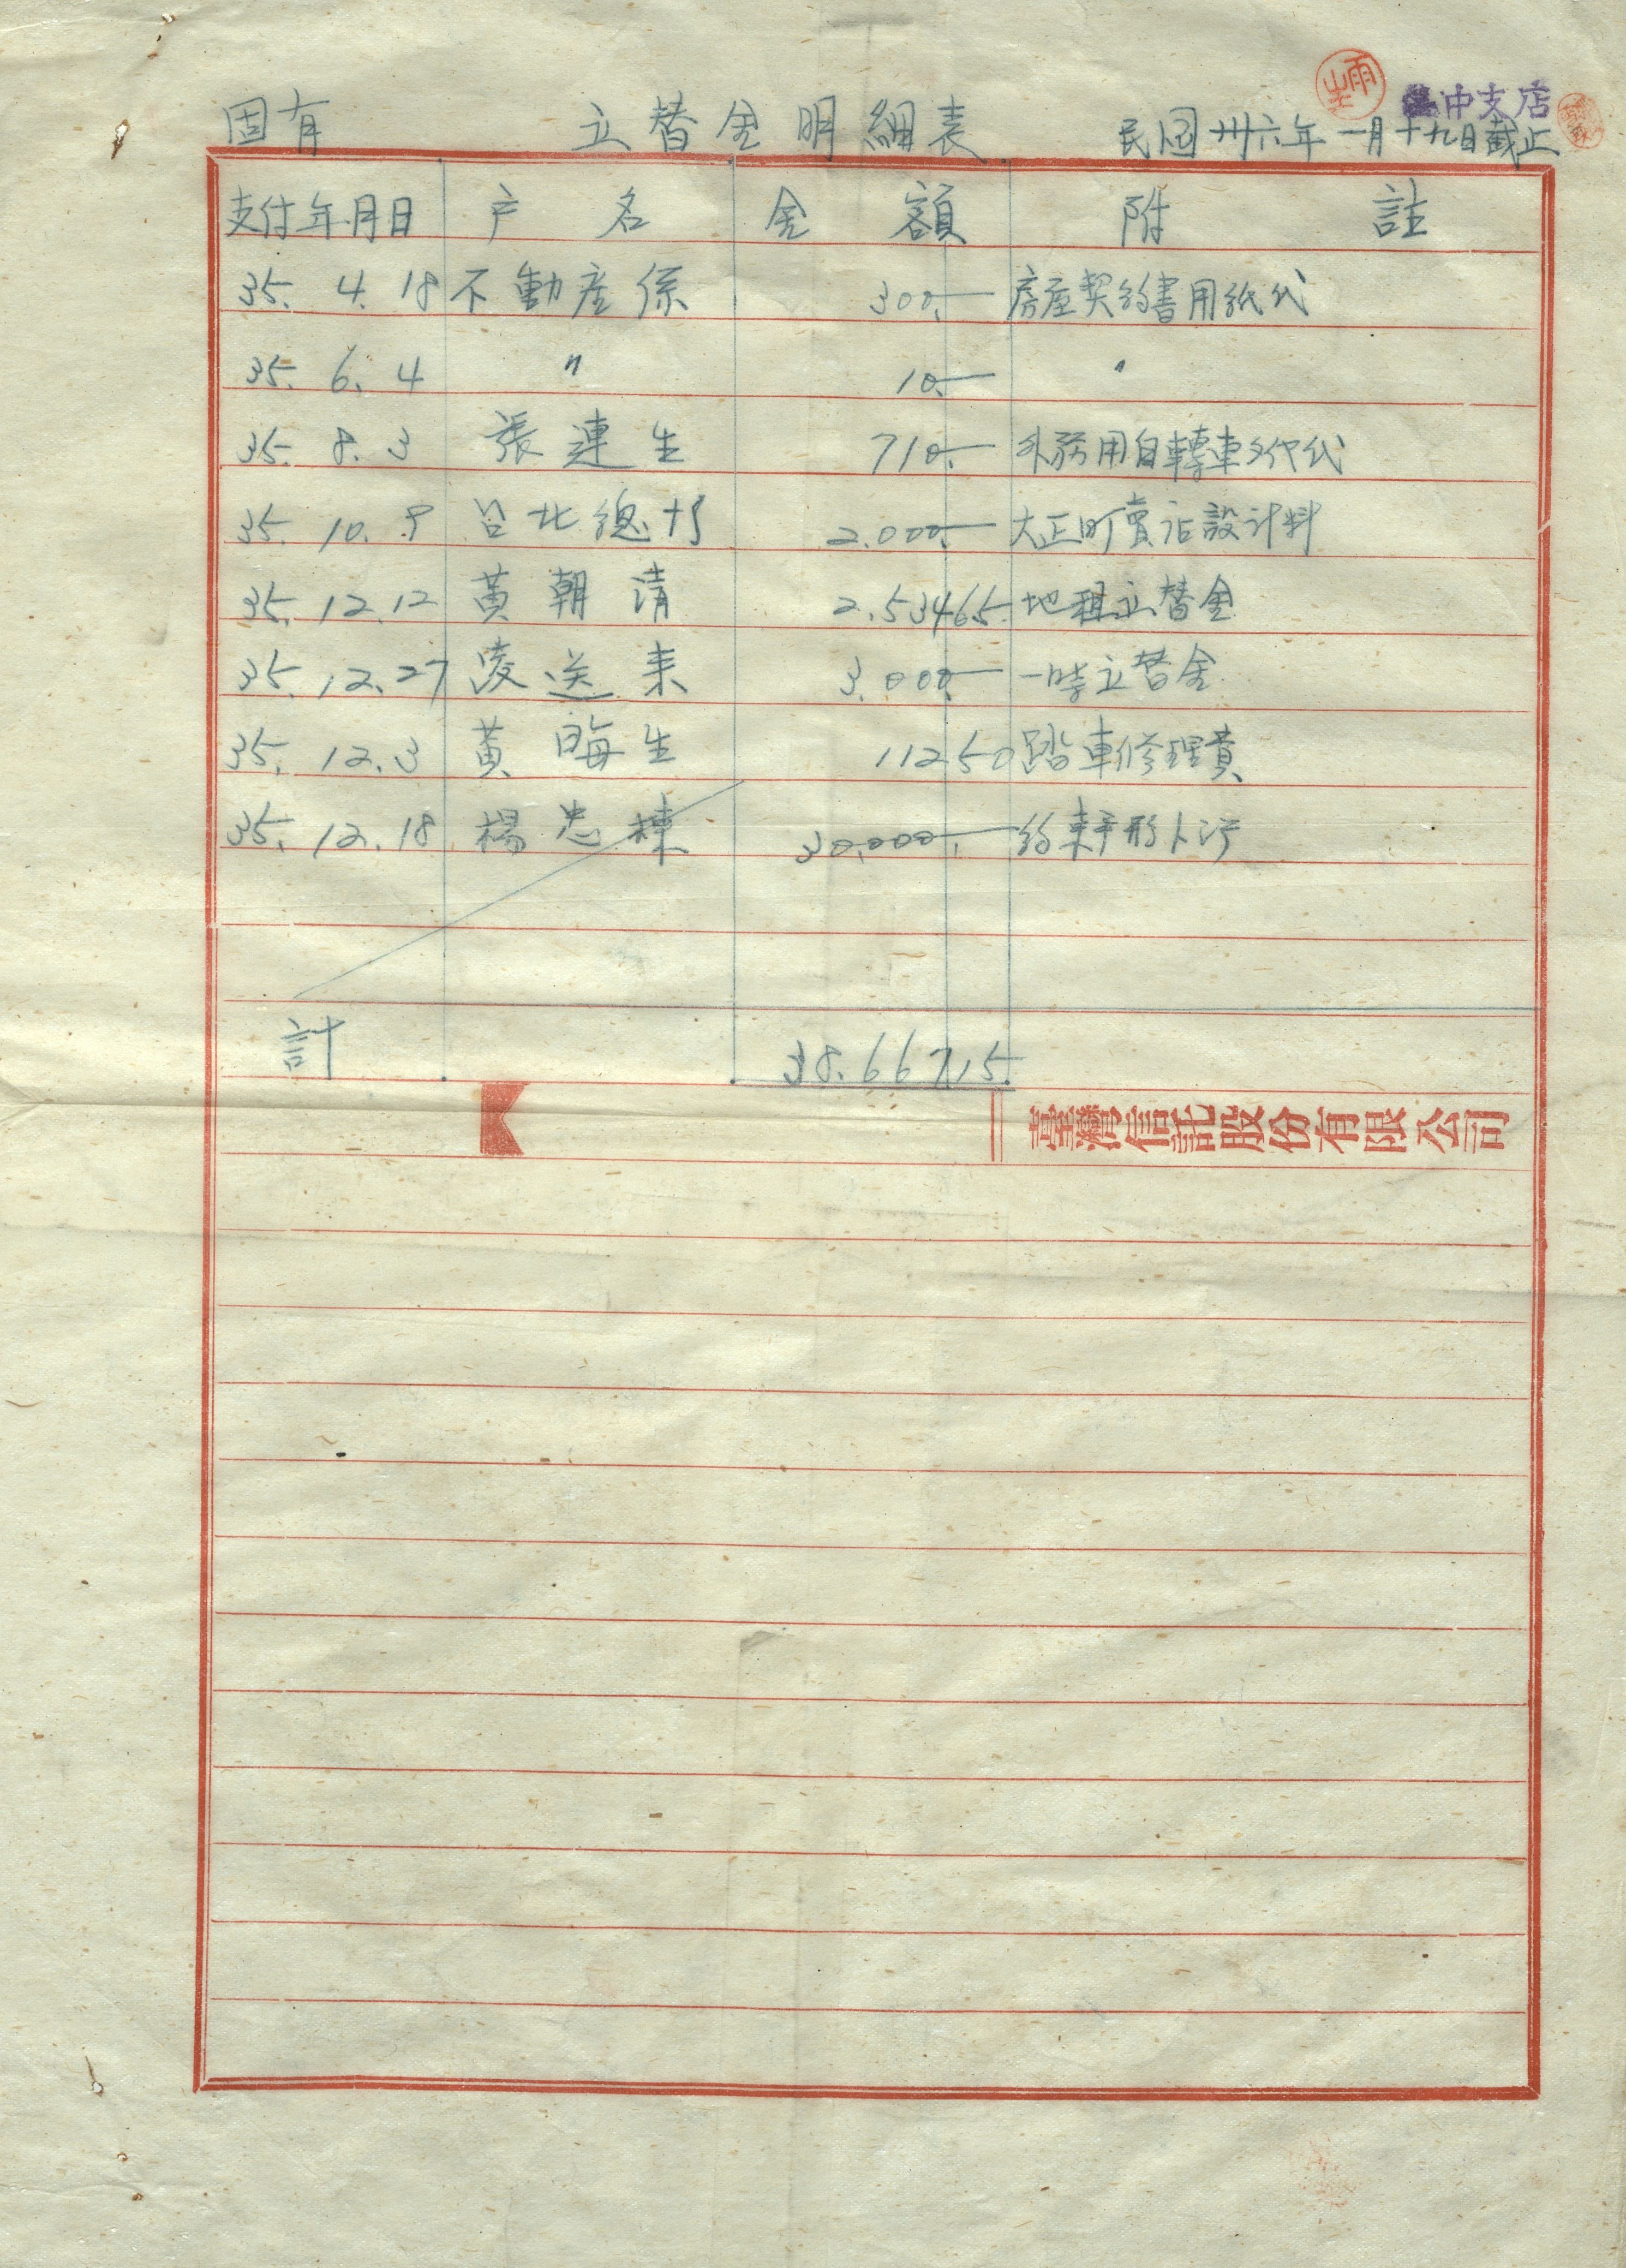 中支店
固有 立替金明細表 民国卅六年一月十九日截止
支付年月日 户名 金額 附註
35. 4. 18 不動産係 300.— 房産契約書用紙代
35. 6. 4 〃 10.— 〃
35. 8. 3 張連生 710.— 外務用自轉車
35. 10. 9 台北總 2.000.— 大正町賣店設計料
35. 12. 12 黃朝清 2.534 65 地租立替金
35. 12. 27 凌送来 3.000.— 一時立替金
35. 12. 3 黃晦生 112 50 踏車修理費
35. 12. 18 楊忠棟 30.000.— 約束手形
計 38.667.15
臺灣信託股份有限公司